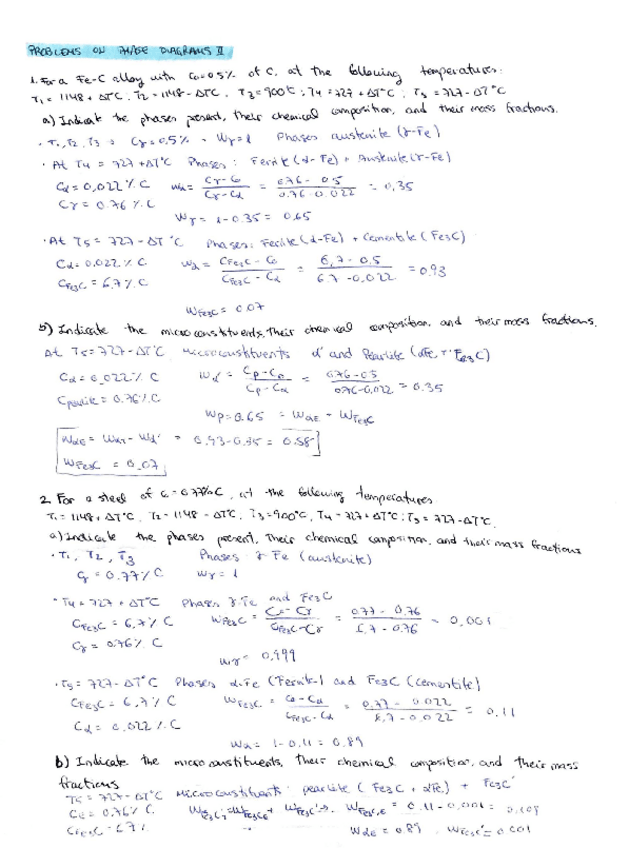 PROBLEMS ON PHASE DIAGRAMS II
1. For a Fe-C alloy with C0=0.5% of C, at the following temperatures:
T1 = 1148 + ΔT°C, T2 = 1148 - ΔT°C, T3 = 900°C; T4 = 727 + ΔT°C; T5 = 727 - ΔT°C
a) Indicate the phases present, their chemical composition, and their mass fractions.
· T1, T2, T3 → Cγ = 0.5% - Wγ = 1 Phases austenite (γ-Fe)
· At T4 = 727 + ΔT°C Phases: Ferrite (α-Fe) + Austenite (γ-Fe)
Cα = 0,022 % C Wα = Cγ - C0 / Cγ - Cα = 0.76 - 0.5 / 0.76 - 0.022 = 0,35
Cγ = 0.76 % C
Wγ = 1 - 0.35 = 0,65
· At T5 = 727 - ΔT °C Phases: Ferrite (α-Fe) + Cementite (Fe3C)
Cα = 0,022 % C Wα = CFe3C - C0 / CFe3C - Cα = 6,7 - 0.5 / 6.7 - 0,022 = 0.93
CFe3C = 6,7 % C
WFe3C = 0.07
b) Indicate the microconstituents, their chemical composition, and their mass fractions.
At T5 = 727 - ΔT°C, microconstituents α' and Pearlite (αFe + Fe3C)
Cα = 0,022 % C Wα' = Cp - C0 / Cp - Cα = 0.76 - 0.5 / 0.76 - 0,022 = 0.35
Cpearlite = 0.76 % C
Wp = 0.65 = WαE - WFe3C
WαE = WαT - Wα' = 0.93 - 0.35 = 0.58
WFe3C = 0.07
2. For a steel of C = 0.77% C, at the following temperatures
T1 = 1148 + ΔT°C, T2 = 1148 - ΔT°C, T3 = 900°C, T4 = 727 + ΔT°C; T5 = 727 - ΔT°C.
a) Indicate the phases present, their chemical composition, and their mass fractions
· T1, T2, T3 Phases γ-Fe (austenite)
Cγ = 0.77 % C Wγ = 1
· T4 = 727 + ΔT°C Phases γ-Fe and Fe3C
CFe3C = 6,7 % C WFe3C = C0 - Cγ / CFe3C - Cγ = 0.77 - 0.76 / 6,7 - 0.76 = 0,001
Cγ = 0.76 % C
Wγ = 0,999
· T5 = 727 - ΔT°C Phases α-Fe (Ferrite) and Fe3C (cementite)
CFe3C = 6,7 % C WFe3C = C0 - Cα / CFe3C - Cα = 0.77 - 0.022 / 6,7 - 0.022 = 0.11
Cα = 0,022 % C
Wα = 1 - 0.11 = 0.89
b) Indicate the microconstituents, their chemical composition, and their mass
fractions
T5 = 727 - ΔT°C Microconstituents: pearlite (Fe3C + αFe) + Fe3C'
= 0.76 % C WFe3C = WFe3CE + WFe3C' → WFe3C,E = 0.11 - 0,001 = 0,109
CFe3C = 6.7 % WαE = 0.89 , WFe3C' = 0.001